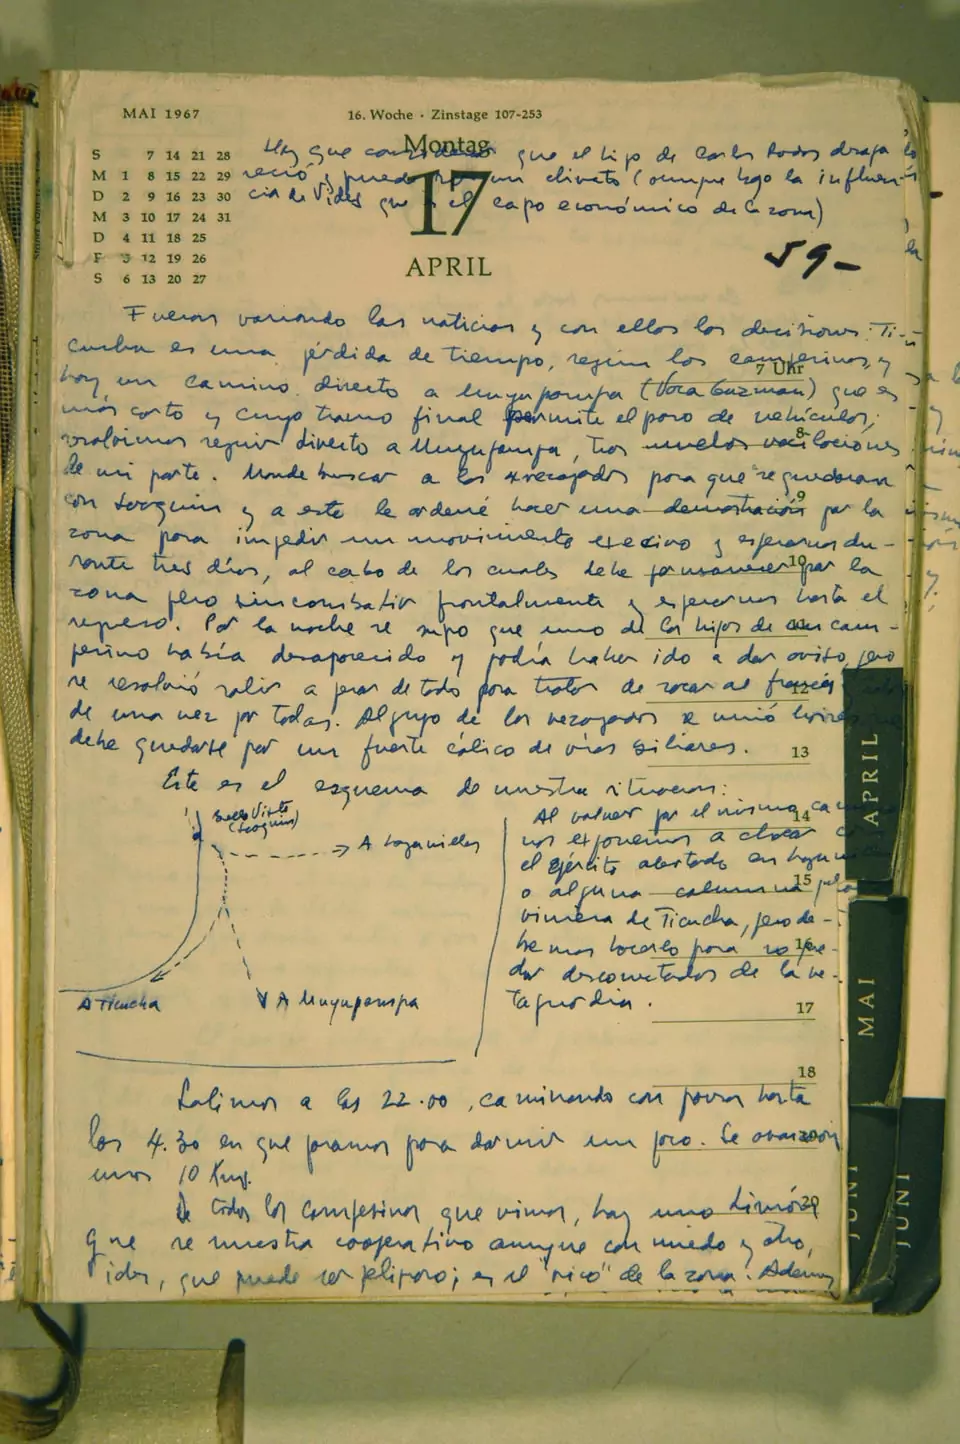 MAI 1967
16. Woche · Zinstage 107-253
Montag
17
APRIL
S 7 14 21 28
M 1 8 15 22 29
D 2 9 16 23 30
M 3 10 17 24 31
D 4 11 18 25
F 5 12 19 26
S 6 13 20 27
Hay que considerar que el hijo de Carlos Rodas desapa
reció y puede ser un chivato (aunque bajo la influen-
cia de Vides que es el capo económico de la zona)
59-
Fueron variando las noticias y con ellas las decisiones. Ti-
cucha es una pérdida de tiempo, según los campesinos, y
hay un camino directo a Muyupampa (Vaca Guzman) que es
más corto y cuyo tramo final permite el paso de vehículos;
resolvimos seguir directo a Muyupampa, tras muchas vacilaciones
de mi parte. Mandé buscar a los rezagados para que se quedaran
con Joaquin y a este le ordené hacer una demostración por la
zona para impedir un movimiento excesivo y esperarnos du-
rante tres días, al cabo de los cuales debe permanecer por la
zona pero sin combatir frontalmente y esperarnos hasta el
regreso. Por la noche se supo que uno de los hijos de un cam-
pesino había desaparecido y podía haber ido a dar aviso, pero
se resolvió salir a pesar de todo para tratar de sacar al francés
de una vez por todas. Al grupo de los rezagados se unió Moisés que
debe quedarse por un fuerte cólico de vías biliares.
Este es el esquema de nuestra situación:
Bella Vista
(Joaquin)
A Lagunillas
A Ticucha
A Muyupampa
Al volver por el mismo
nos exponemos a chocar
el ejército alertado en
o alguna columna que
viniera de Ticucha, pero de-
bemos hacerlo para no que-
dar desconectados de la re-
taguardia.
Salimos a las 22.00, caminando con pausas hasta
las 4.30 en que paramos para dormir un poco. Se avanzaron
unos 10 Kms.
De todos los campesinos que vimos, hay uno Simón
que se muestra cooperativo aunque con miedo y otro,
Vides, que puede ser peligroso; es el "rico" de la zona. Además
7 Uhr
8
9
10
11
12
13
14
15
16
17
18
20
APRIL
MAI
JUNI
JUNI